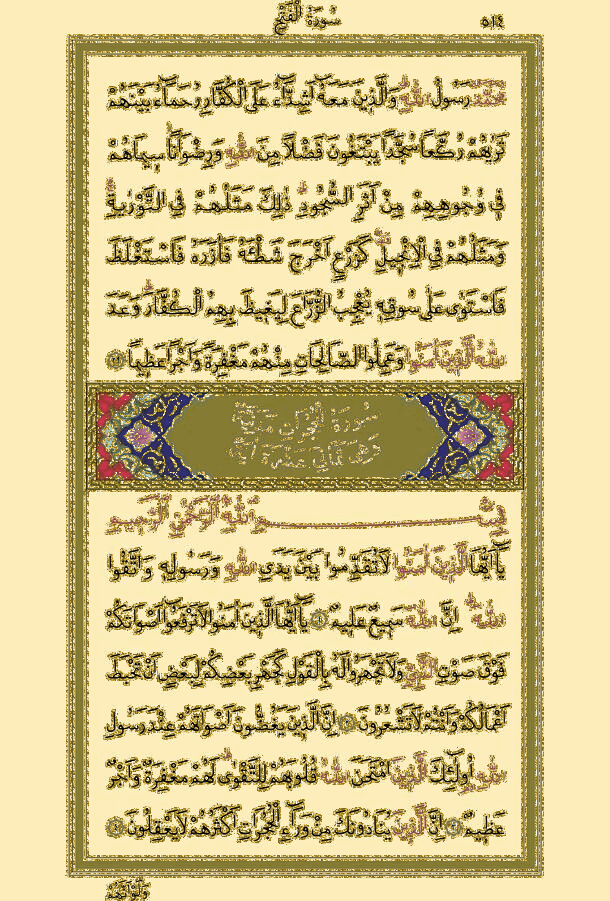 سُورَةُ الْفَتْحِ ٥١٤
مُحَمَّدٌ رَسُولُ اللّٰهِ وَالَّذِينَ مَعَهُ اَشِدَّاءُ عَلَى الْكُفَّارِ رُحَمَاءُ بَيْنَهُمْ
تَرٰيهُمْ رُكَّعًا سُجَّدًا يَبْتَغُونَ فَضْلًا مِنَ اللّٰهِ وَرِضْوَانًا سِيمَاهُمْ
فِي وُجُوهِهِمْ مِنْ اَثَرِ السُّجُودِ ذٰلِكَ مَثَلُهُمْ فِي التَّوْرٰيةِ
وَمَثَلُهُمْ فِي الْاِنْجِيلِ كَزَرْعٍ اَخْرَجَ شَطْئَهُ فَاٰزَرَهُ فَاسْتَغْلَظَ
فَاسْتَوٰى عَلٰى سُوقِهِ يُعْجِبُ الزُّرَّاعَ لِيَغِيظَ بِهِمُ الْكُفَّارَ وَعَدَ
اللّٰهُ الَّذِينَ اٰمَنُوا وَعَمِلُوا الصَّالِحَاتِ مِنْهُمْ مَغْفِرَةً وَاَجْرًا عَظِيمًا
سُورَةُ الْحُجُرَاتِ مَدَنِيَّةٌ
وَهِيَ ثَمَانِيَ عَشْرَةَ اٰيَةً
بِسْمِ اللّٰهِ الرَّحْمٰنِ الرَّحِيمِ
يَا اَيُّهَا الَّذِينَ اٰمَنُوا لَا تُقَدِّمُوا بَيْنَ يَدَيِ اللّٰهِ وَرَسُولِهِ وَاتَّقُوا
اللّٰهَ اِنَّ اللّٰهَ سَمِيعٌ عَلِيمٌ يَا اَيُّهَا الَّذِينَ اٰمَنُوا لَا تَرْفَعُوا اَصْوَاتَكُمْ
فَوْقَ صَوْتِ النَّبِيِّ وَلَا تَجْهَرُوا لَهُ بِالْقَوْلِ كَجَهْرِ بَعْضِكُمْ لِبَعْضٍ اَنْ تَحْبَطَ
اَعْمَالُكُمْ وَاَنْتُمْ لَا تَشْعُرُونَ اِنَّ الَّذِينَ يَغُضُّونَ اَصْوَاتَهُمْ عِنْدَ رَسُولِ
اللّٰهِ اُولٰئِكَ الَّذِينَ امْتَحَنَ اللّٰهُ قُلُوبَهُمْ لِلتَّقْوٰى لَهُمْ مَغْفِرَةٌ وَاَجْرٌ
عَظِيمٌ اِنَّ الَّذِينَ يُنَادُونَكَ مِنْ وَرَاءِ الْحُجُرَاتِ اَكْثَرُهُمْ لَا يَعْقِلُونَ
وَلَوْ اَنَّهُمْ